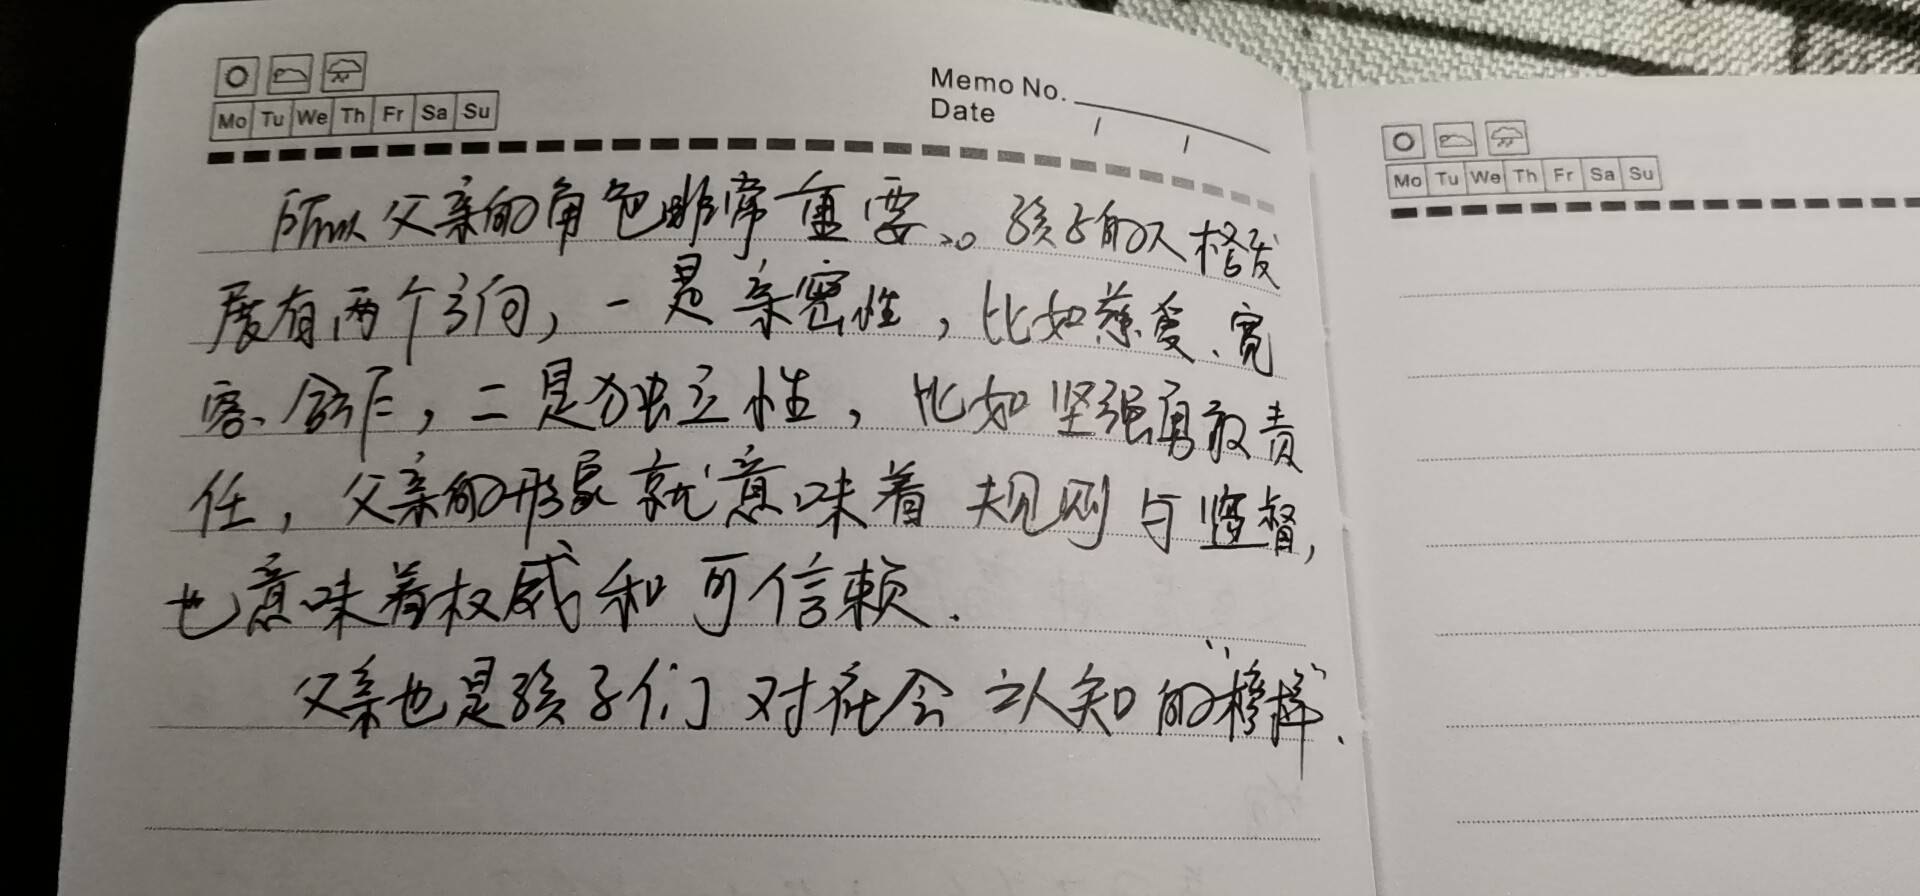 Memo No.
Date / /
Mo Tu We Th Fr Sa Su
所以父亲的角色非常重要。孩子的人格发
展有两个方向，一是亲密性，比如慈爱、宽
容、合作，二是独立性，比如坚强勇敢责
任，父亲的形象就意味着规则与监督，
也意味着权威和可信赖.
父亲也是孩子们对社会认知的“榜样”.
Mo Tu We Th Fr Sa Su